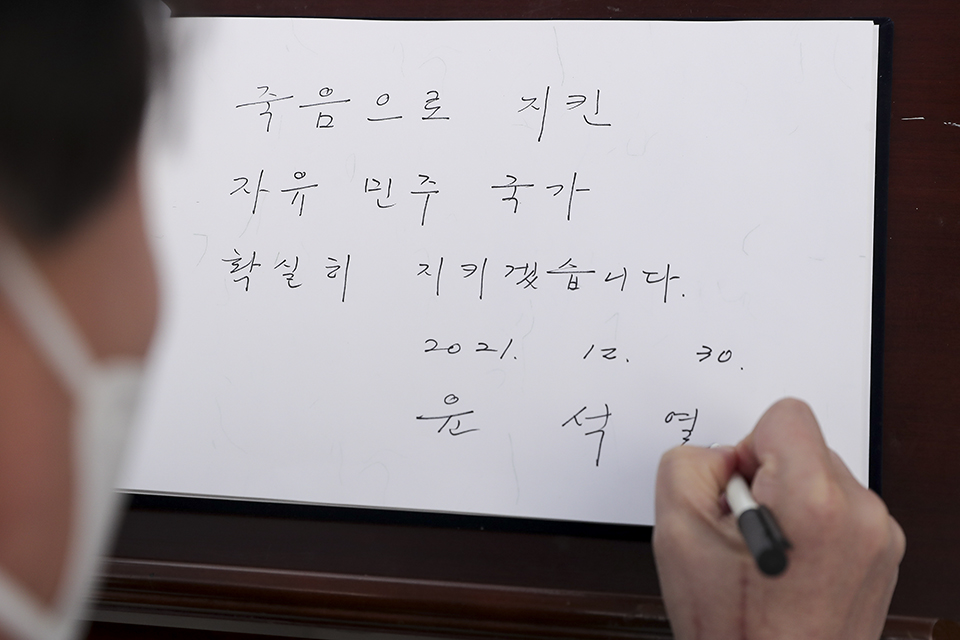 죽음으로 지킨
자유 민주 국가
확실히 지키겠습니다.
2021. 12. 30.
윤 석 열